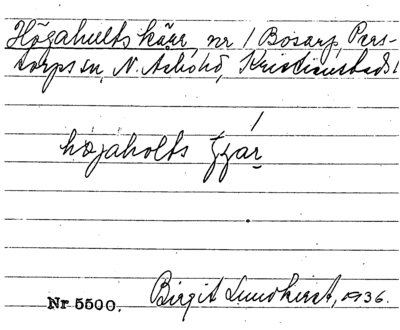 Högahults kärr, nr 1 Bosarp, Pers-
torps sn, N. Åsbo hd, Kristianstads l
högahólts
Nr 5500.
Birgit Lundkvist, 1936.